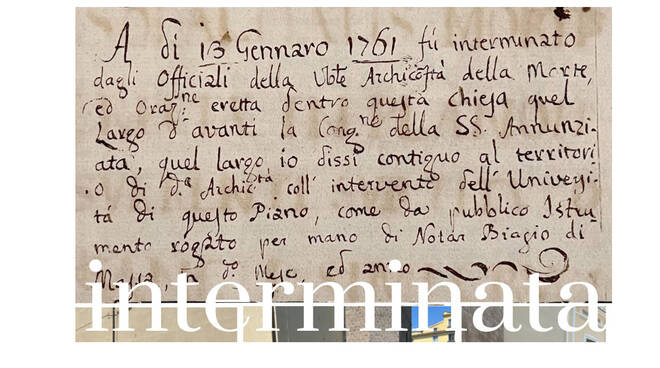 A dì 13 Gennaro 1761 fú interminato
dagli Officiali della Vbte Archicoftà della Morte,
ed Oraz:ne eretta dentro questa chiesa quel
Largo d'avanti la Cong.ne della SS. Annunzi-
ata, quel largo io dissi contiguo al territori
o di d.a Archic.tà coll' intervento dell' Universi-
tá di questo Piano, come da pubblico Istru
mento rogato per mano di Notar Biagio di
Massa, do Mese, ed anno
interminata